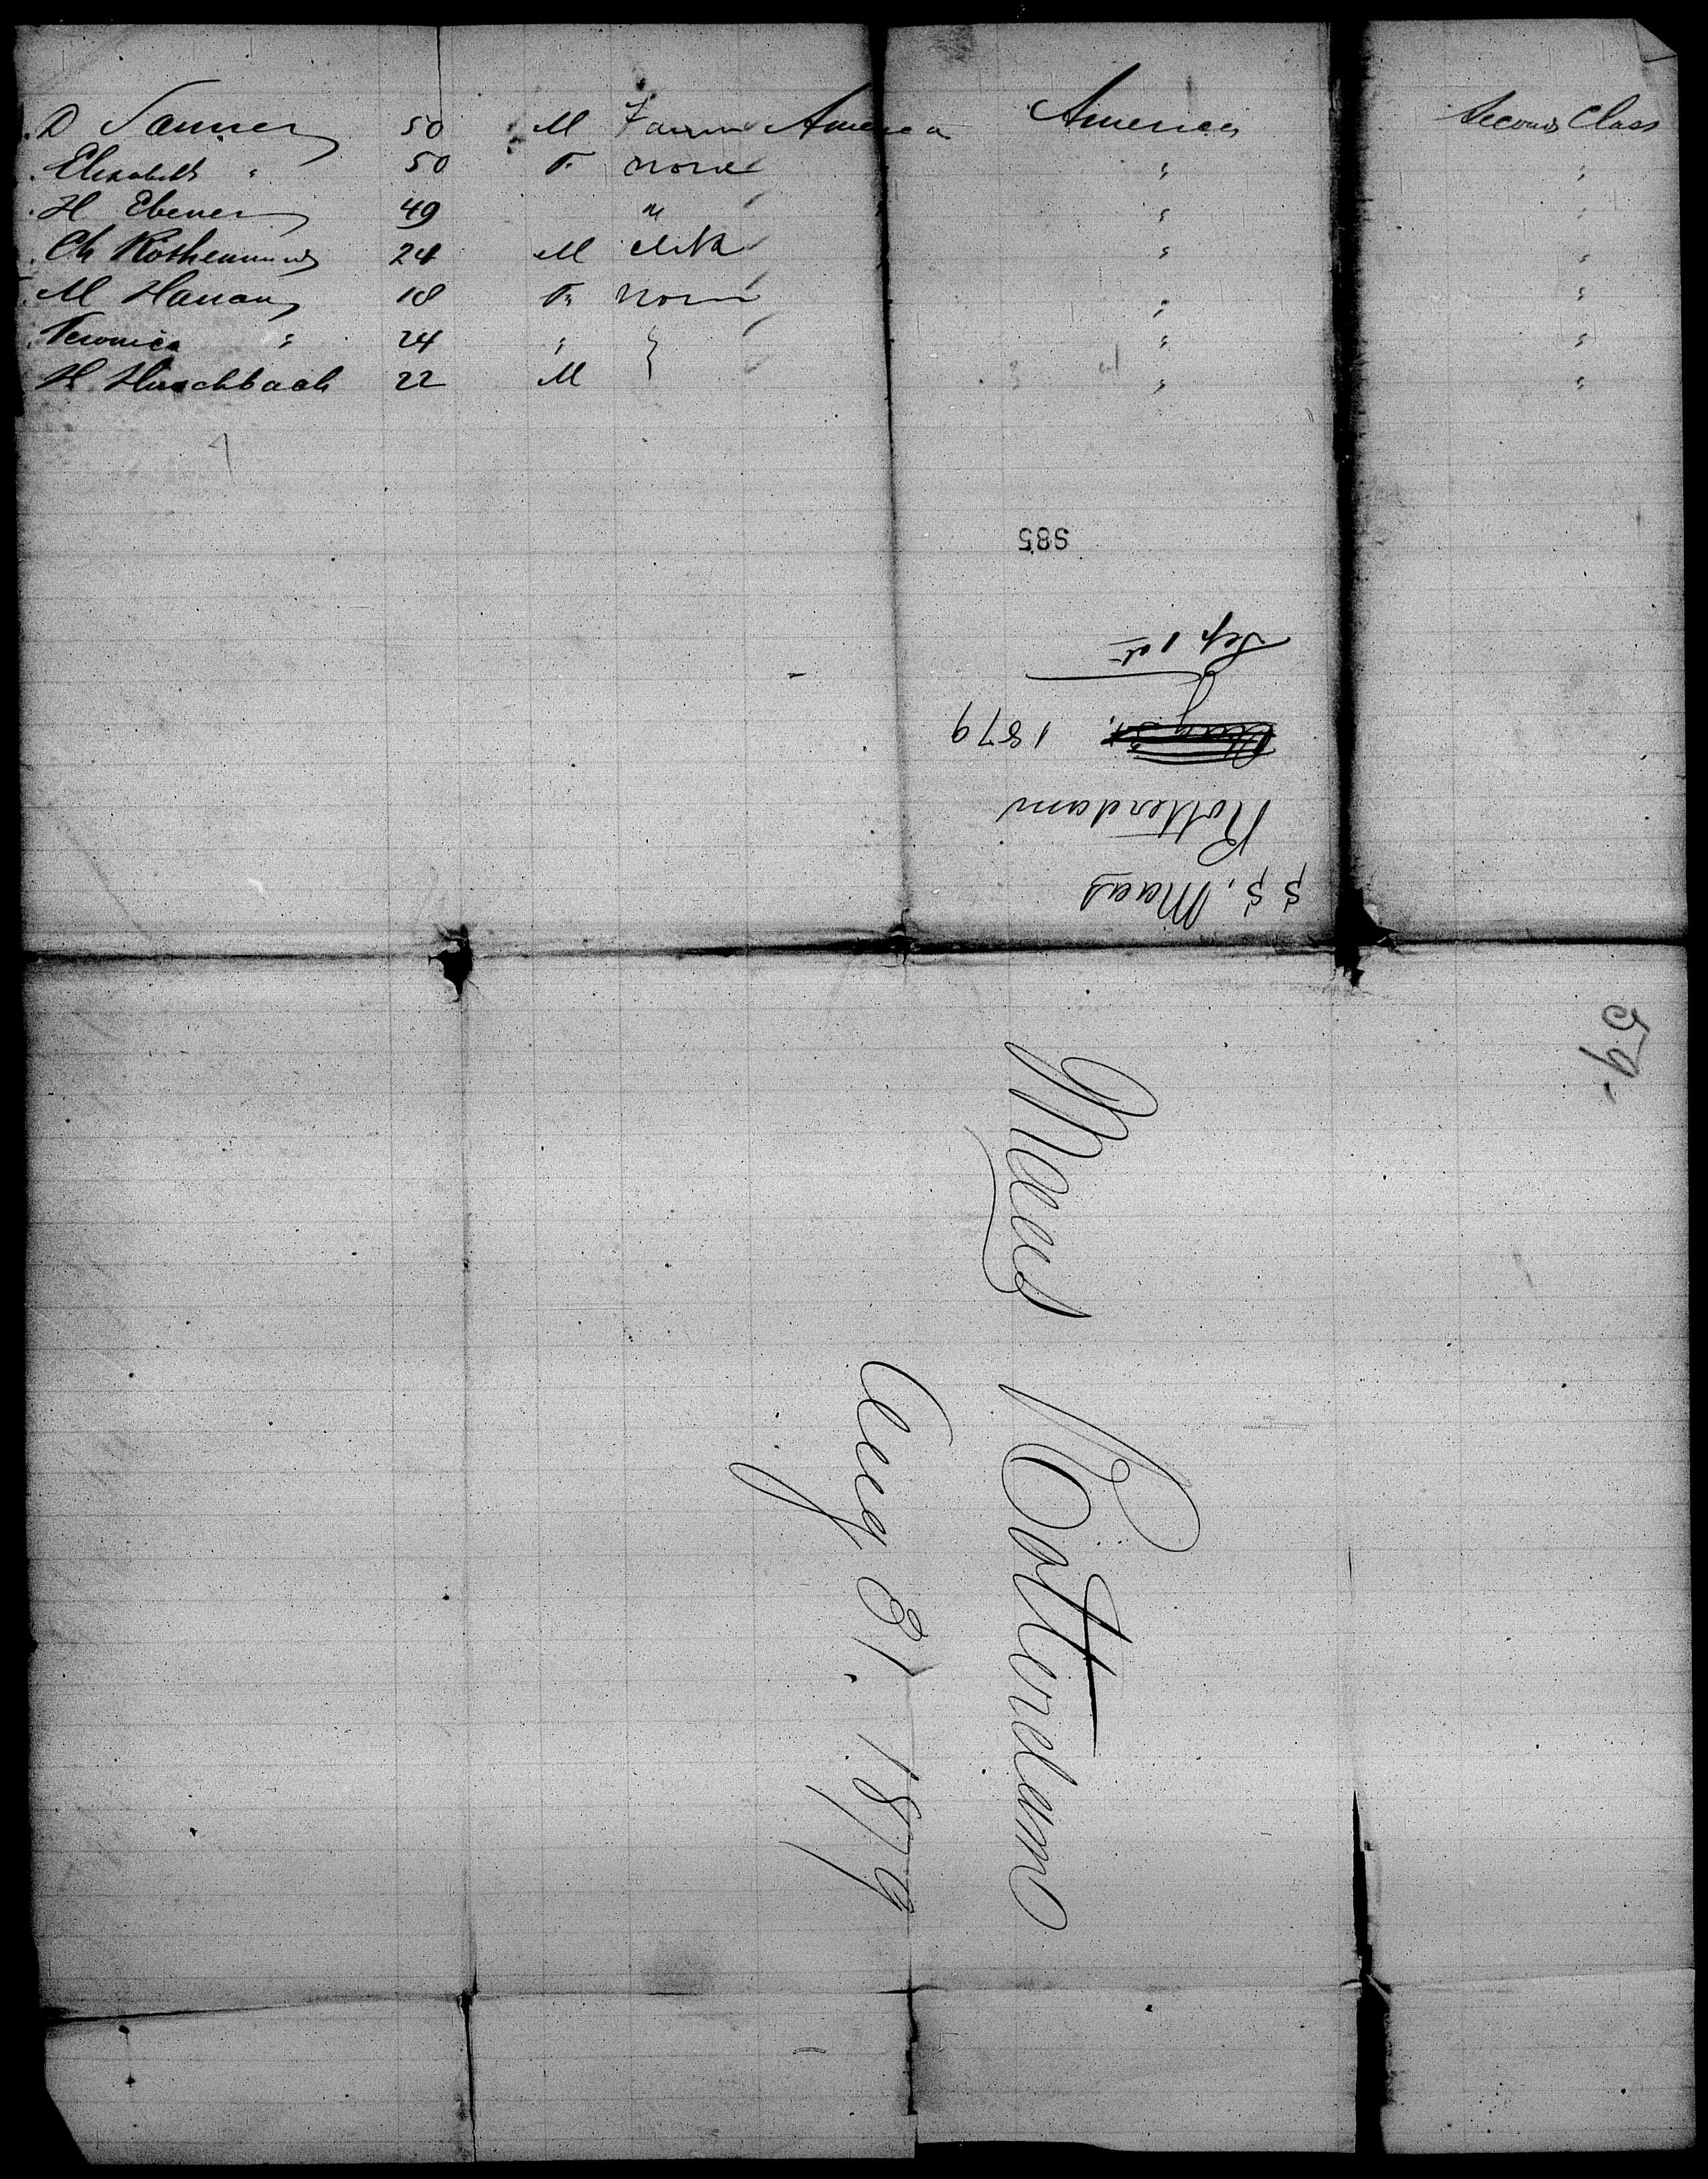 D Tanner 50 M Farmer America America Second Class
Elisabeth " 50 F. none " "
H Ebener 49 " " "
Ch Rothenmund 24 M clerk " "
M Hanany 18 F. none " "
Veronica " 24 " " "
H. Hirschbach 22 M " "
S85
S S. Maas
Rotterdam
1879
Sep 1st
59.
Maas Rotterdam
Aug 31. 1879